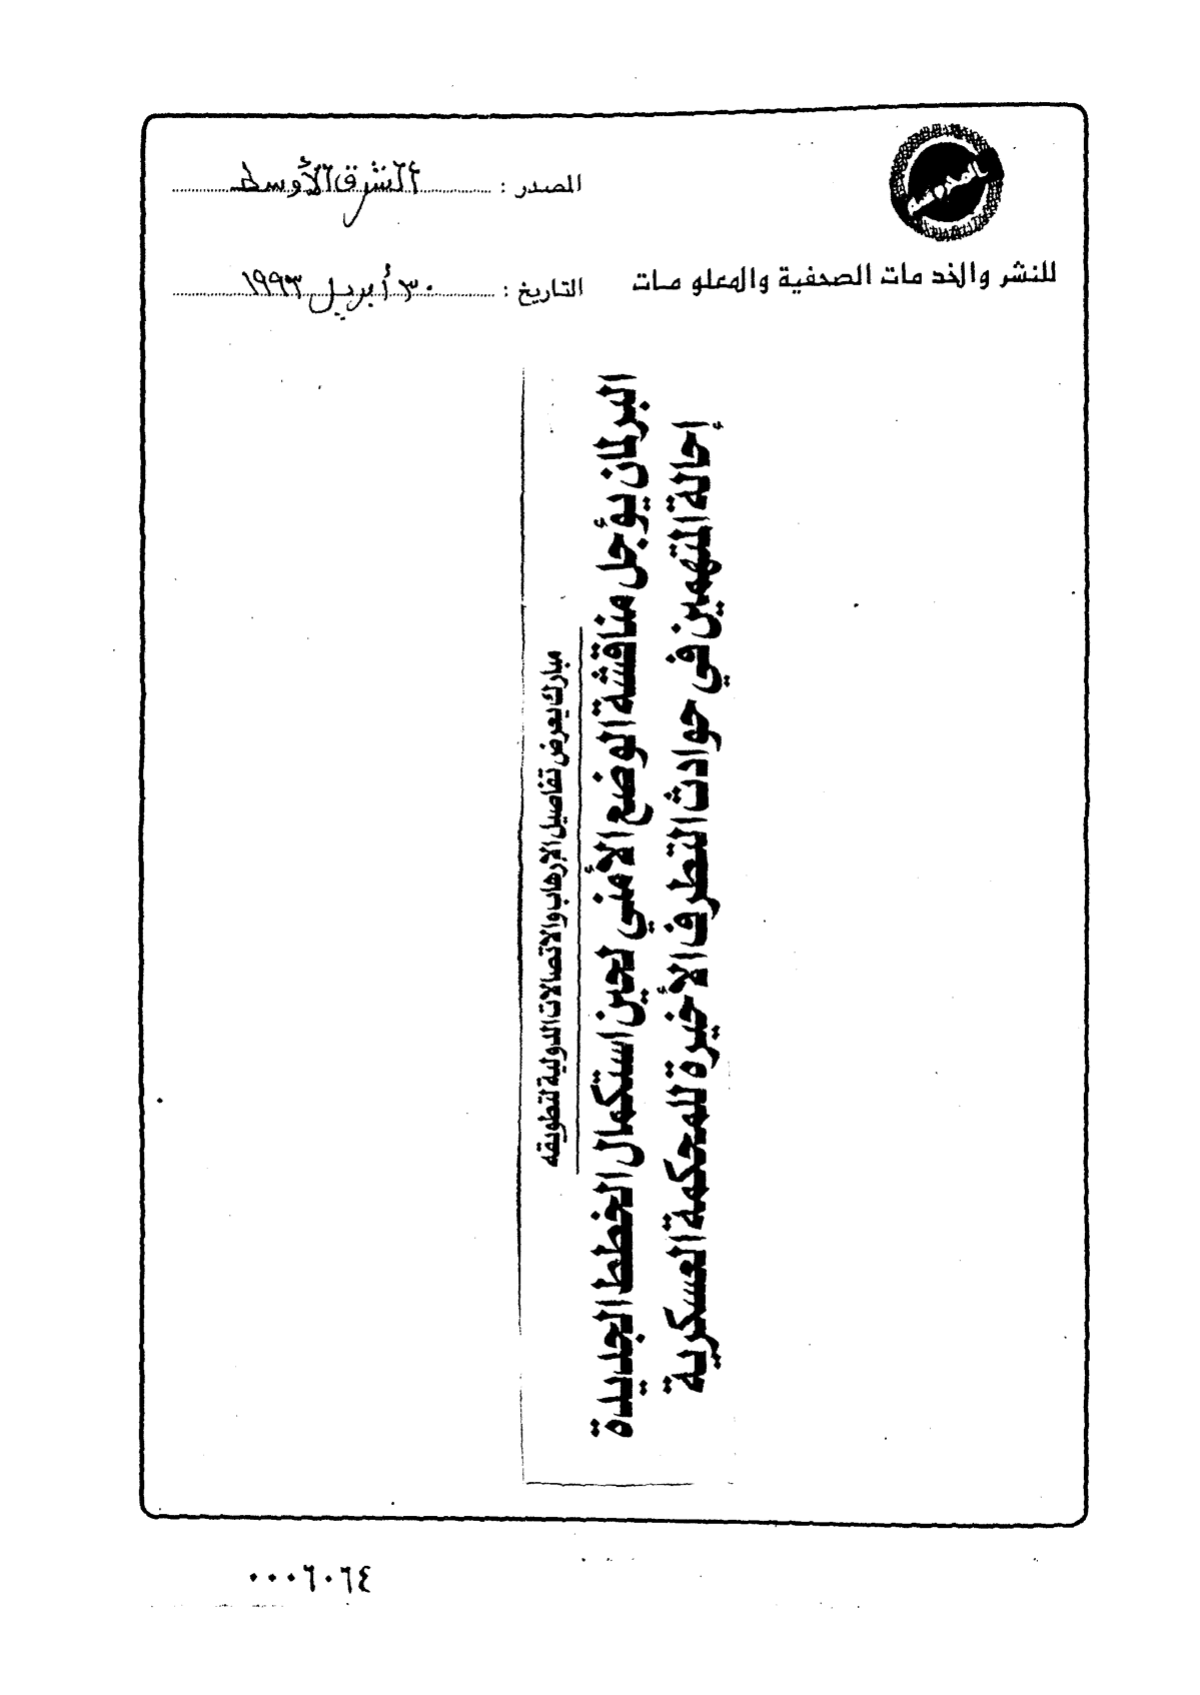 المحروسة
للنشر والخدمات الصحفية والمعلومات
المصدر : الشرق الأوسط
التاريخ : ٣٠ أبريل ١٩٩٣
مبارك يعرض تفاصيل الإرهاب والاتصالات الدولية لتطويقه
البرلمان يؤجل مناقشة الوضع الأمني لحين استكمال الخطط الجديدة
إحالة المتهمين في حوادث التطرف الأخيرة للمحكمة العسكرية
٠٠٠٦٠٦٤